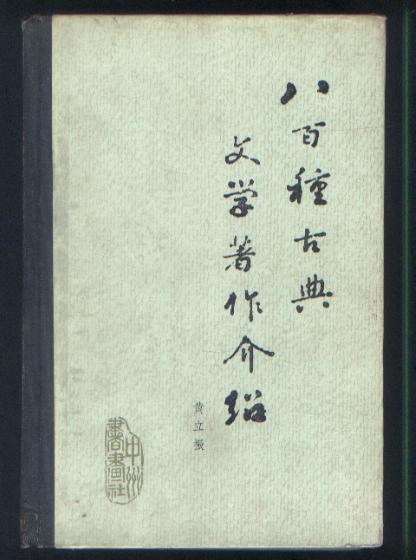 八百種古典
文学著作介绍
黄立振
中州
書畫社